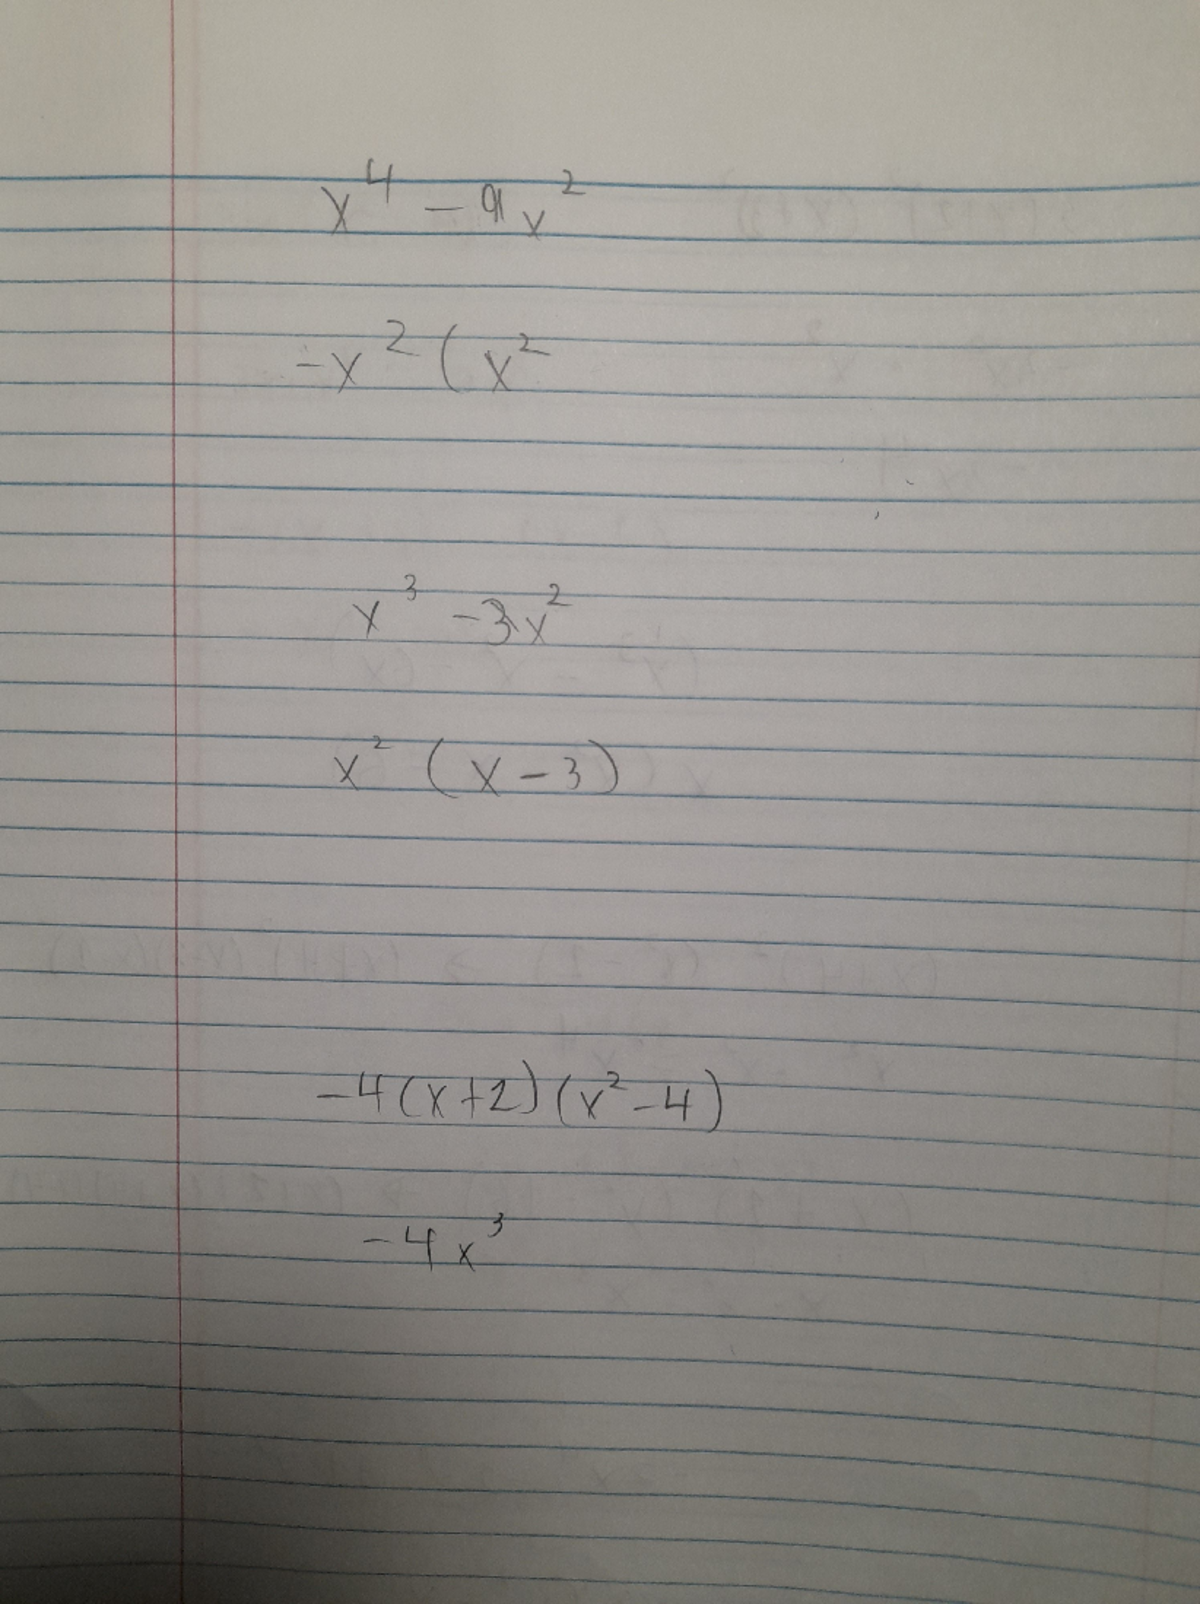 x⁴ - 9x²
-x² (x²
x³ -3x²
x² (x-3)
-4(x+2)(x²-4)
-4x³